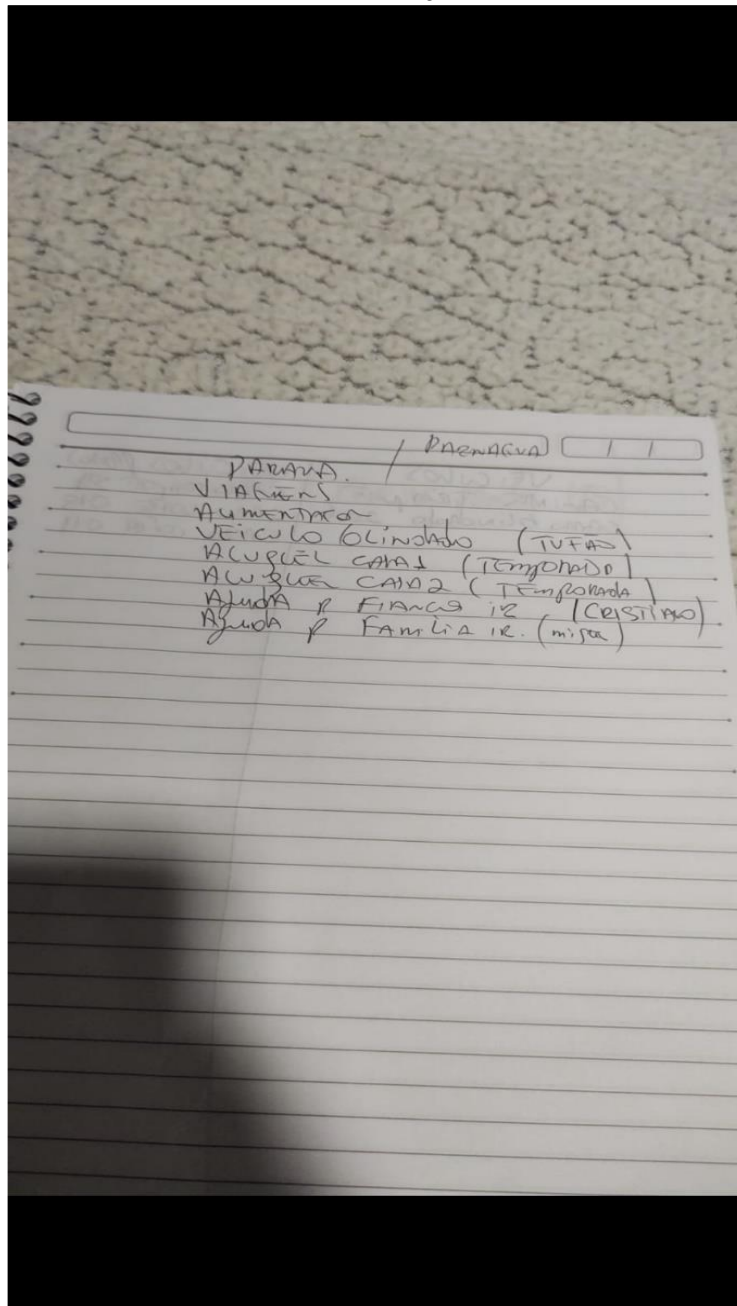 / PARNAGUA
PARANA.
VIAGENS
AUMENTACAO
VEICULO BLINDADO (TUFAO)
ALUGUEL CASA 1 (TEMPORADA)
ALUGUEL CASA 2 (TEMPORADA)
AJUDA P FIANCO IR (CRISTIANO)
AJUDA P FAMILIA IR.